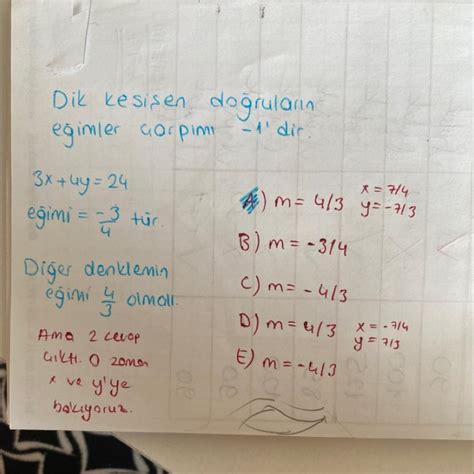 Dik kesişen doğruların
eğimler çarpımı -1'dir.
3x+4y=24
eğimi = -3/4 tür.
Diğer denklemin
eğimi 4/3 olmalı.
Ama 2 cevap
çıktı. O zaman
x ve y'ye
bakıyoruz.
A) m = 4/3 x = 7/4
y = -7/3
B) m = -3/4
C) m = -4/3
D) m = 4/3 x = -7/4
y = 7/3
E) m = -4/3